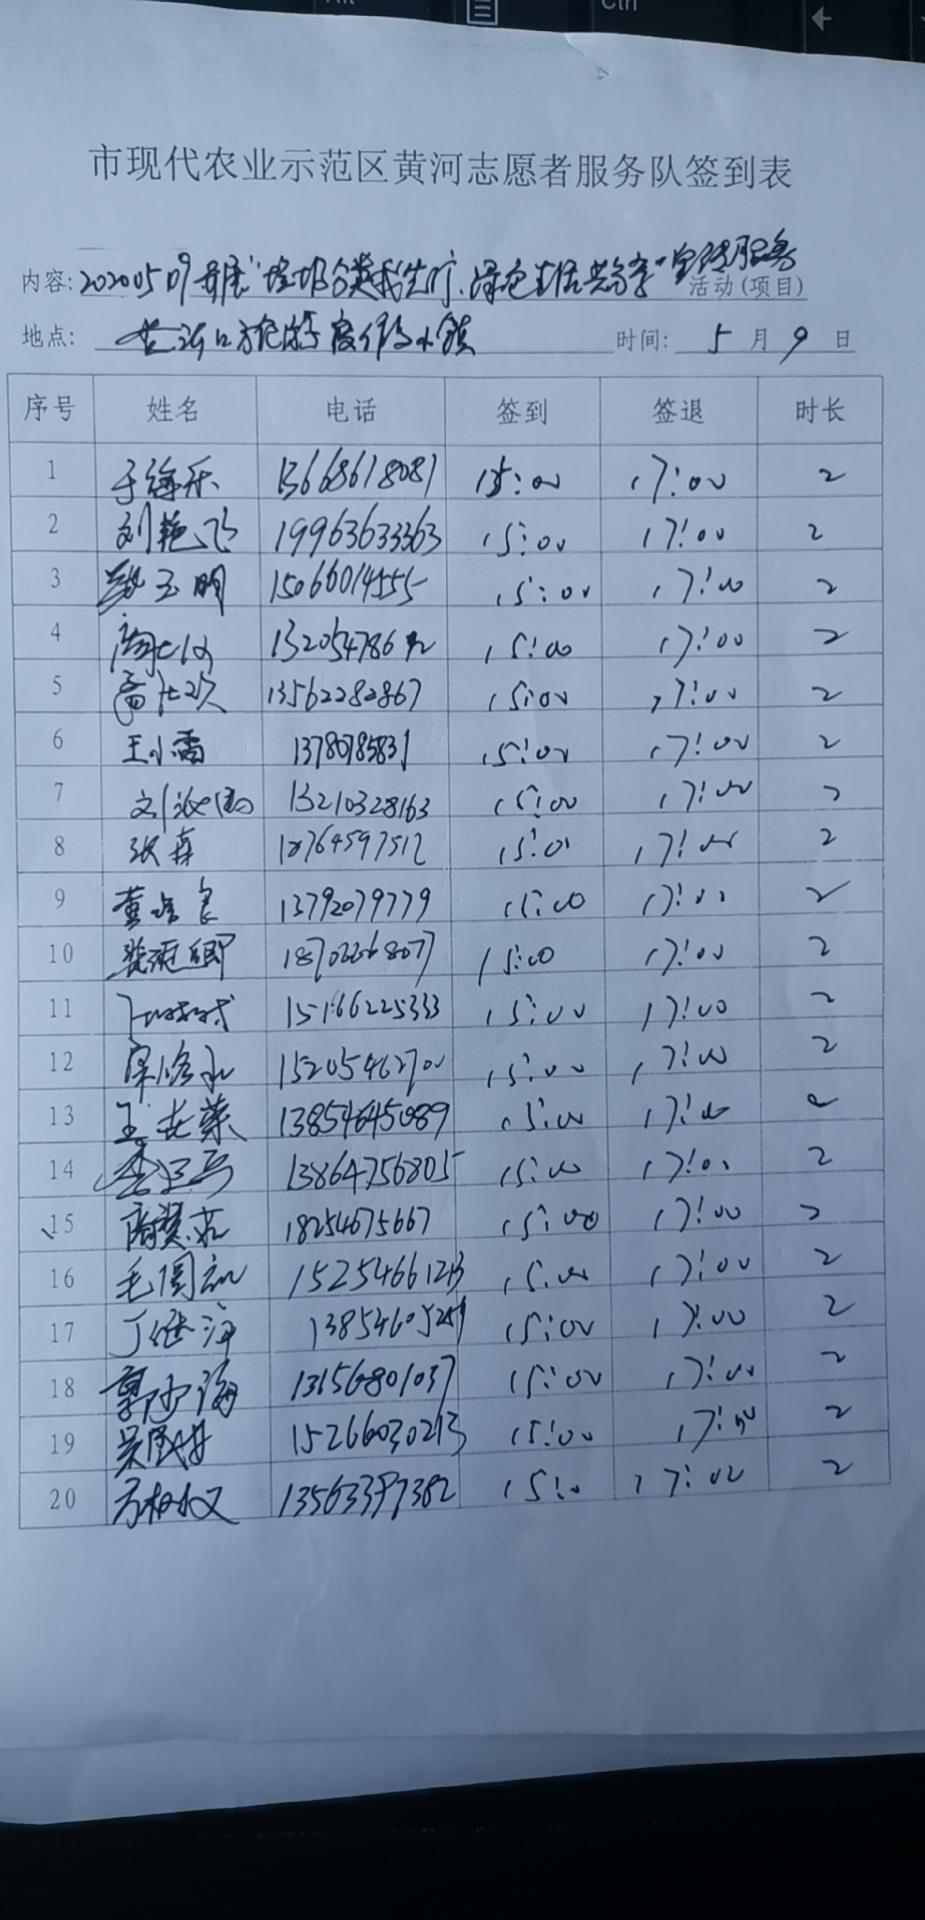 Alt
Ctrl
市现代农业示范区黄河志愿者服务队签到表
内容:20200509开展"垃圾分类我先行、绿色生活共分享"宣传服务活动(项目)
地点: 黄河口旅游度假小镇 时间: 5月9日
序号 姓名 电话 签到 签退 时长
1 于海乐 13668618081 15:00 17:00 2
2 刘艳飞 19963633363 15:00 17:00 2
3 玉明 15066014555 15:00 17:00 2
4 15:00 17:00 2
5 13562282867 15:00 17:00 2
6 王小雷 13780785831 15:00 17:00 2
7 刘 13210328163 15:00 17:00 2
8 张森 18764597512 15:00 17:00 2
9 董 13792079779 15:00 17:00 2
10 15:00 17:00 2
11 15166225333 15:00 17:00 2
12 15205462700 15:00 17:00 2
13 王 13854645089 15:00 17:00 2
14 13864756805 15:00 17:00 2
15 18254675667 15:00 17:00 2
16 毛 15254661213 15:00 17:00 2
17 丁继海 15:00 17:00 2
18 郭少海 13156801037 15:00 17:00 2
19 吴 15266030213 15:00 17:00 2
20 13563397382 15:0 17:00 2